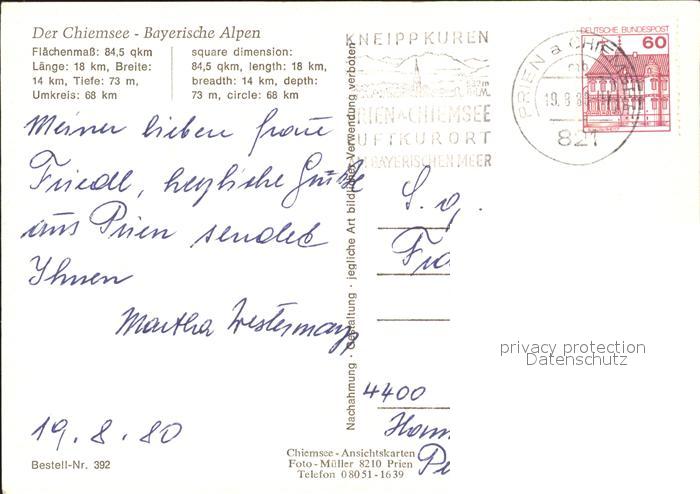 Der Chiemsee - Bayerische Alpen
Flächenmaß: 84,5 qkm
Länge: 18 km, Breite:
14 km, Tiefe: 73 m,
Umkreis: 68 km
square dimension:
84,5 qkm, length: 18 km,
breadth: 14 km, depth:
73 m, circle: 68 km
Meiner lieben Frau
Friedl, herzliche Grüße
aus Prien sendet
Ihnen
Martha Westermayr
19.8.80
Bestell-Nr. 392
Nachahmung · Gestaltung · jegliche Art bildlicher Verwendung verboten
Chiemsee-Ansichtskarten
Foto-Müller 8210 Prien
Telefon 08051-1639
KNEIPPKUREN
PRIEN A CHIEMSEE
LUFTKURORT
BAYERISCHEN MEER
PRIEN a CHIEMSEE
19.8.80
821
DEUTSCHE BUNDESPOST
60
S. g.
Fra
4400
privacy protection
Datenschutz